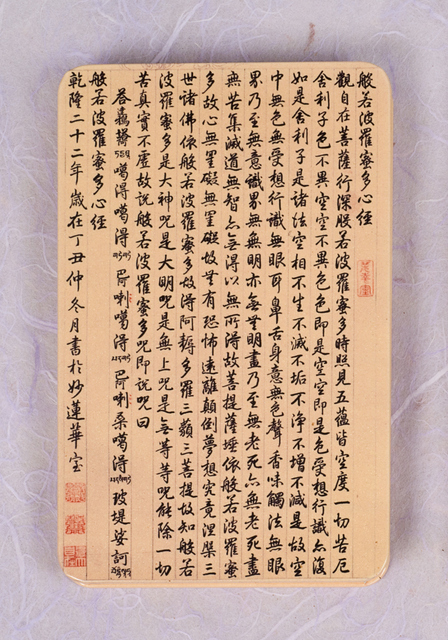 般若波羅蜜多心經
觀自在菩薩行深般若波羅蜜多時照見五蘊皆空度一切苦厄
舍利子色不異空空不異色色即是空空即是色受想行識亦復
如是舍利子是諸法空相不生不滅不垢不淨不增不減是故空
中無色無受想行識無眼耳鼻舌身意無色聲香味觸法無眼
界乃至無意識界無無明亦無無明盡乃至無老死亦無老死盡
無苦集滅道無智亦無得以無所得故菩提薩埵依般若波羅蜜
多故心無罣礙無罣礙故無有恐怖遠離顛倒夢想究竟涅槃三
世諸佛依般若波羅蜜多故得阿耨多羅三藐三菩提故知般若
波羅蜜多是大神咒是大明咒是無上咒是無等等咒能除一切
苦真實不虛故說般若波羅蜜多咒即說咒曰
噶得噶得巴喇噶得巴喇桑噶得玻堤娑訶
般若波羅蜜多心經
乾隆二十二年歲在丁丑仲冬月書於妙蓮華室